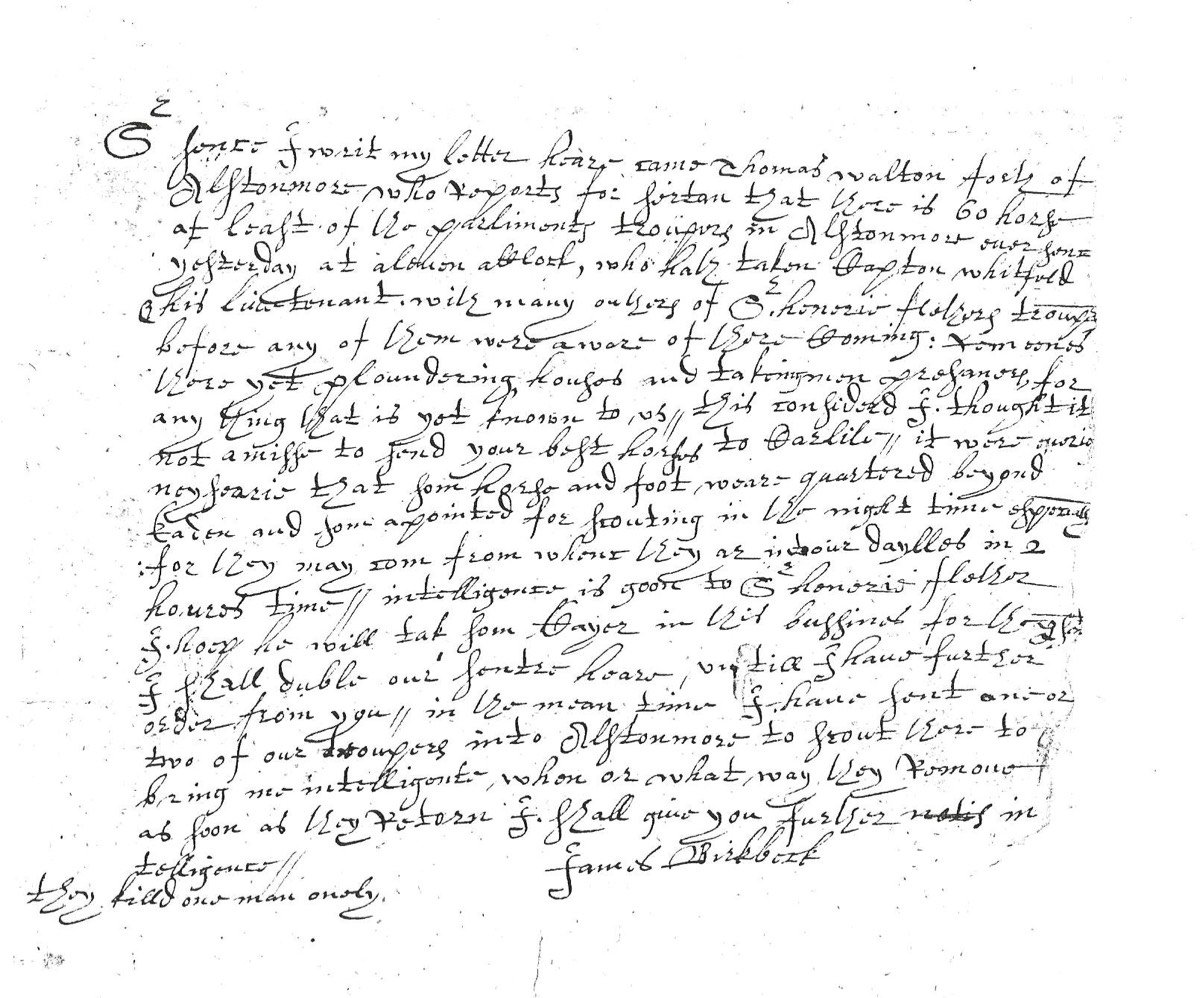 Sr hence I writ my letter heare came Thomas walton forth of
Alstonmore who Reports for sertan that there is 60 horse
at least of the parliments troupers in Alstonmore ever sent
yesterday at aleven aklock, who hath taken Kapton whitfeld
& his liuetenant with many outhers of Sr henerie flethers troupe
before any of them were aware of there Koming: Remeenes
there yet ploundering houses and taking men presaners for
any thing that is yet known to us // this considerd I thought it
not amisse to send your best horses to Karlile // it were
neysearie that som horse and foot weare quartered beyond
Eaden and som apointed for scouting in the night time espetially
for they may com from whenc they ar into our daylles in 2
houres time // intelligence is goon to Sr henerie flether
I hoep he will tak som Kayer in this bussines for the
I shall duble our sentre heare, untill I have further
order from you // in the mean time I have sent one or
two of our troupers into Alstonmore to scout there to
bring me intelligence, when or what way they Remove
as soon as they Retorn I shall give you further notis in
telligence //
James Birkbeck
they killd one man onely.